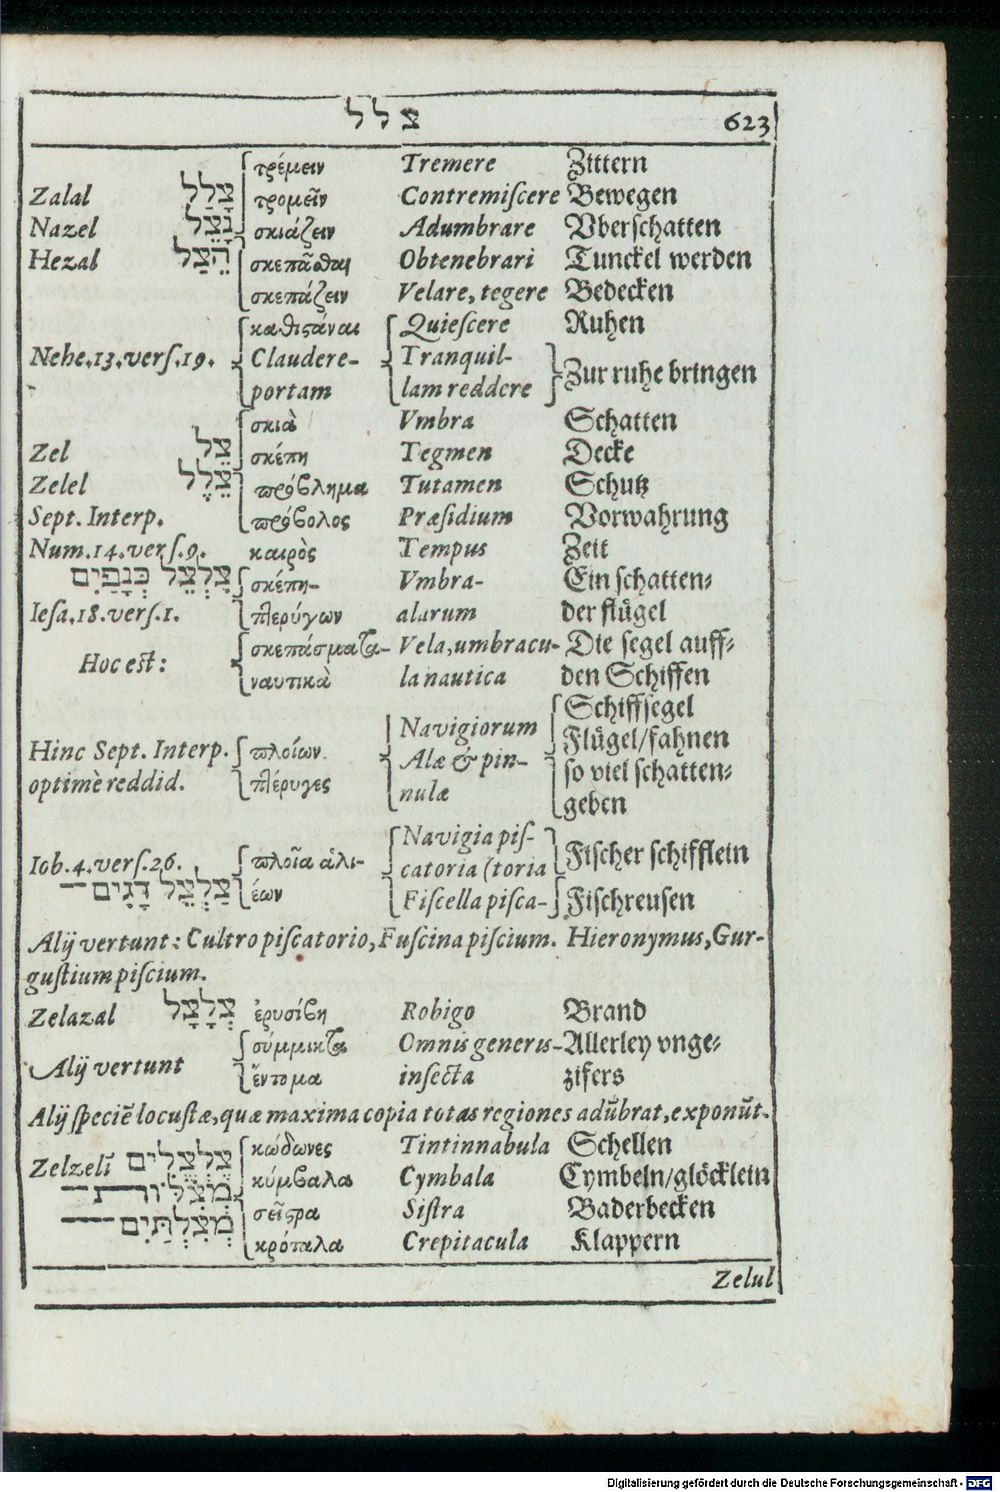 צלל 623
τρέμειν Tremere Zittern
Zalal צָלַל τρομεῖν Contremiſcere Bewegen
Nazel נָצֵל σκιάζειν Adumbrare Vberſchatten
Hezal הֵצַל σκεπᾶσθαι Obtenebrari Tunckel werden
σκεπάζειν Velare, tegere Bedecken
καθιστάναι Quieſcere Ruhen
Nehe.13.verſ.19. Claudere- Tranquil- Zur ruhe bringen
portam lam reddere
σκιὰ Vmbra Schatten
Zel צֵל σκέπη Tegmen Decke
Zelel צֵלֶל πρόβλημα Tutamen Schutz
Sept. Interp. πρόβολος Præſidium Vorwahrung
Num.14.verſ.9. καιρὸς Tempus Zeit
צִלְצַל כְּנָפַיִם σκέπη- Vmbra- Ein ſchatten-
Ieſa.18.verſ.1. πτερύγων alarum der flügel
Hoc eſt: σκεπάσματα- Vela, umbracu- Die ſegel auff-
ναυτικὰ la nautica den Schiffen
Schiffſegel
Navigiorum Flügel/fahnen
Hinc Sept. Interp. πλοίων Alæ & pin- ſo viel ſchatten-
optimè reddid. πτέρυγες nulæ geben
Navigia piſ-
Iob.4.verſ.26. πλοῖα ἁλι- catoria (toria Fiſcher ſchifflein
צַלְצַל דָּגִים έων Fiſcella piſca- Fiſchreuſen
Alij vertunt: Cultro piſcatorio, Fuſcina piſcium. Hieronymus, Gur-
guſtium piſcium.
Zelazal צְלָצָל ἐρυσίβη Robigo Brand
Alij vertunt σύμμικτα Omnis generis- Allerley vnge-
ἔντομα inſecta zifers
Alij ſpeciē locuſtæ, quæ maxima copia totas regiones adūbrat, exponūt.
κώδωνες Tintinnabula Schellen
Zelzelī צֶלְצֱלִים κύμβαλα Cymbala Cymbeln/glöcklein
מְצִלּוֹת σεῖστρα Siſtra Baderbecken
מְצִלְתַּיִם κρόταλα Crepitacula Klappern
Zelul
Digitalisierung gefördert durch die Deutsche Forschungsgemeinschaft - DFG